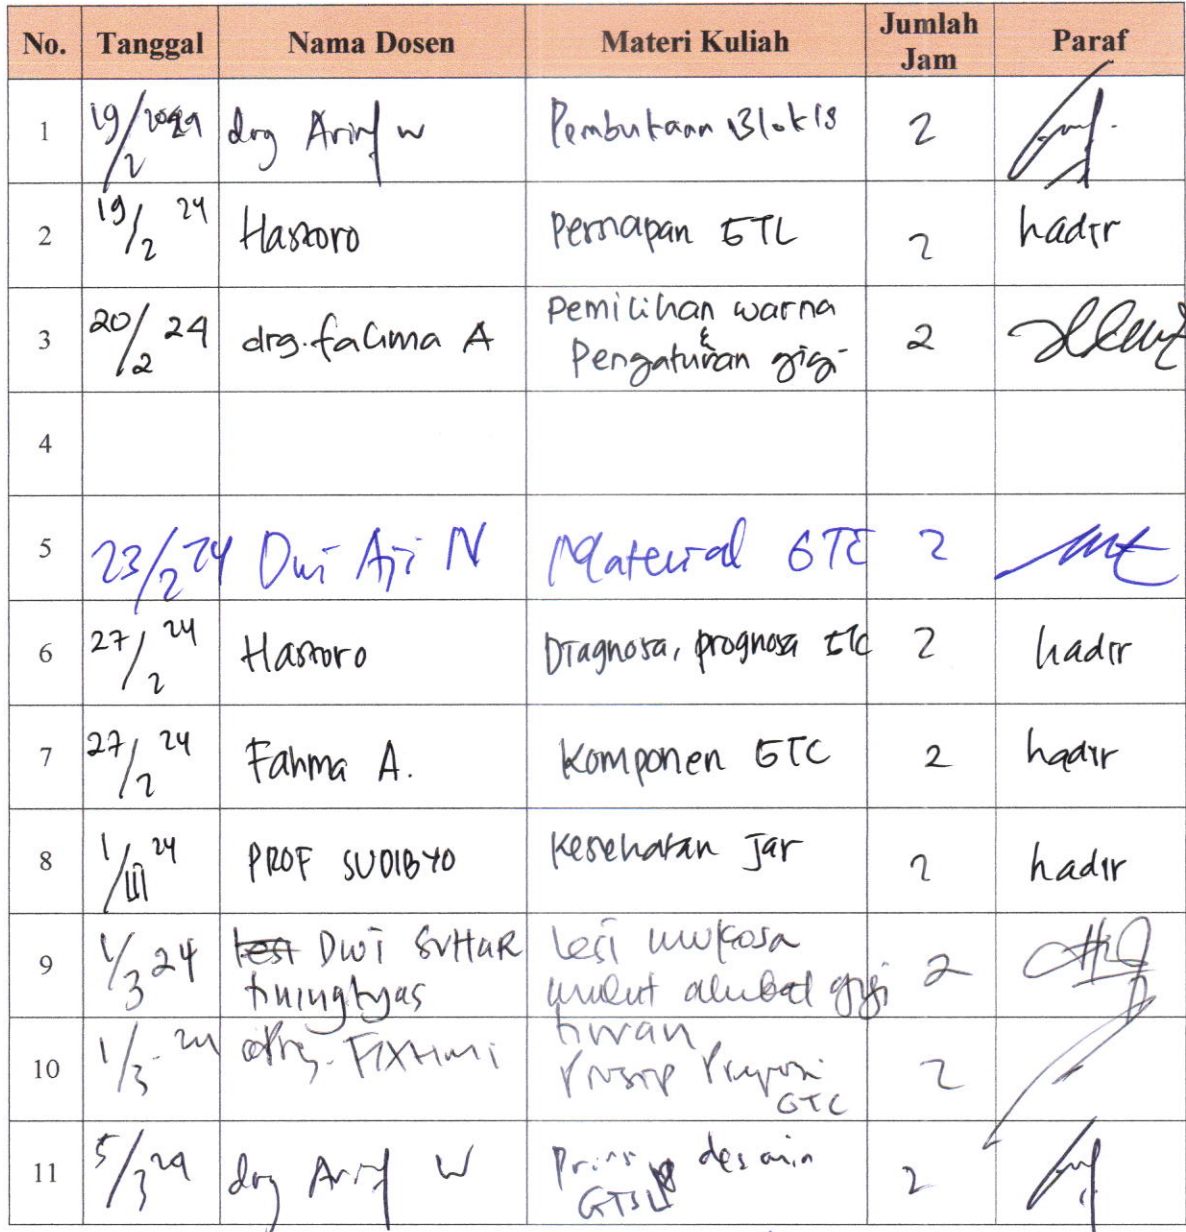 No. Tanggal Nama Dosen Materi Kuliah Jumlah Jam Paraf
1 19/2 2024 drg Arief W Pembukaan Blok 18 2
2 19/2 24 Hastoro Persiapan GTL 2 hadir
3 20/2 24 drg. Fahma A Pemilihan warna & Pengaturan gigi 2
4
5 23/2 24 Dwi Aji N Material GTC 2
6 27/2 24 Hastoro Diagnosa, prognosa GTC 2 hadir
7 27/2 24 Fahma A. Komponen GTC 2 hadir
8 1/III 24 PROF SUDIBYO Kesehatan Jar 2 hadir
9 1/3 24 Dwi SUHAR tiningtyas Lesi mukosa mulut akibat gigi tiruan 2
10 1/3 24 drg. Prinsip GTC 2
11 5/3 24 drg Arief W Prinsip desain GTSL 2